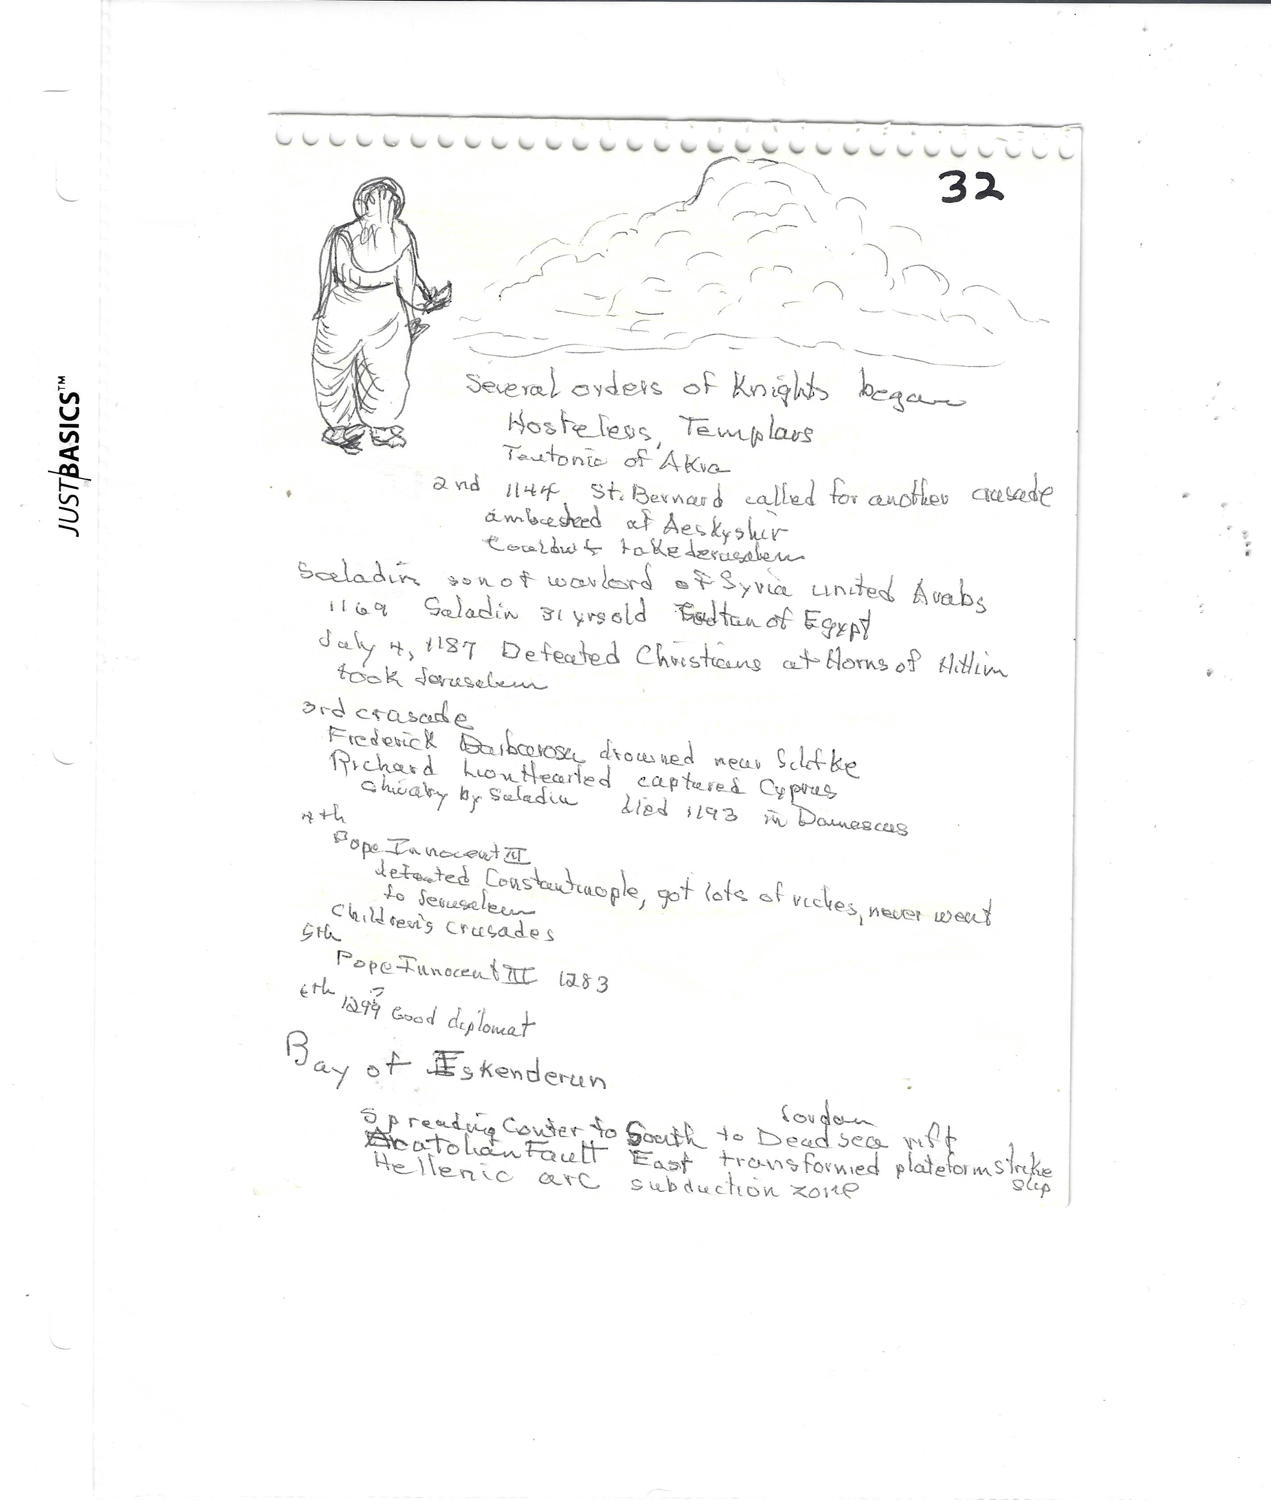 JUSTBASICS™
32
Several orders of Knights began
Hosteless, Templars
Teutonic of Akra
2nd 1144 St. Bernard called for another crusade
ambushed at Aeskyshir
Couldn't take Jerusalem
Saladin son of warlord of Syria united Arabs
1169 Saladin 31 yrs old Sultan of Egypt
July 4, 1187 Defeated Christians at Horns of Hittim
took Jerusalem
3rd crasade
Frederick Barbarosa drowned near Silifke
Richard LionHearted captured Cyprus
Chivalry by Saladin died 1193 in Damascus
4th
Pope Innocent III
defeated Constantinople, got lots of riches, never went
to Jerusalem
Children's Crusades
5th
Pope Innocent III 1283
6th Good diplomat
Bay of Iskenderun
Jordan
Spreading Center to South to Dead sea rift
Anatolian Fault East transformed plateform strike
slip
Hellenic arc subduction zone